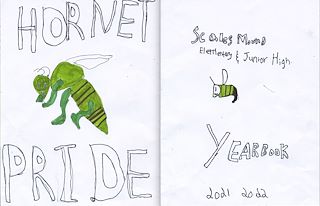 HORNET
PRIDE
Scales Mound
Elementary & Junior High
YEARBOOK
2021 2022